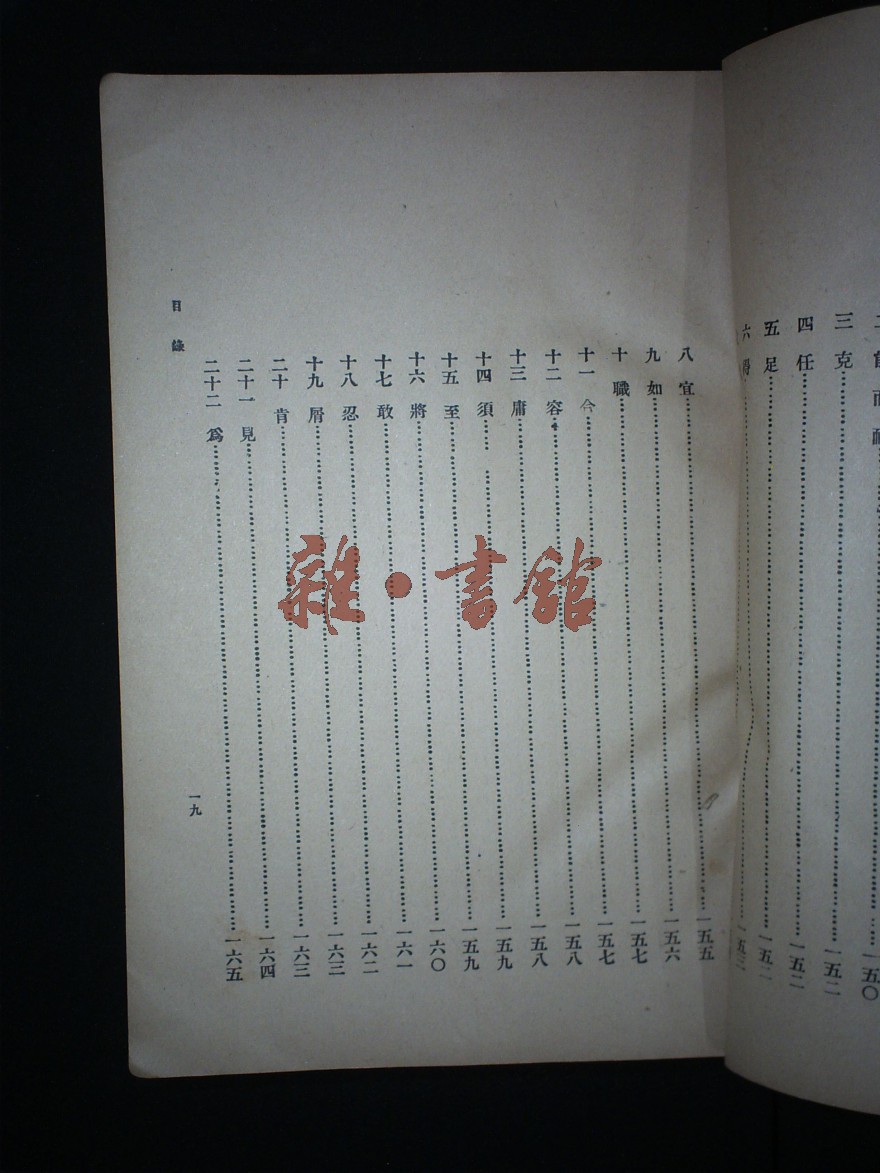 而
一五〇
三 克……一五二
四 任……一五二
五 足……一五二
六 得……一五三
八 宜……一五五
九 如……一五六
十 職……一五七
十一 今……一五七
十二 容……一五八
十三 庸……一五八
十四 須……一五九
十五 至……一五九
十六 將……一六〇
十七 敢……一六一
十八 忍……一六二
十九 屑……一六三
二十 肯……一六三
二十一 見……一六四
二十二 爲……一六五
目錄
一九
雜·書館